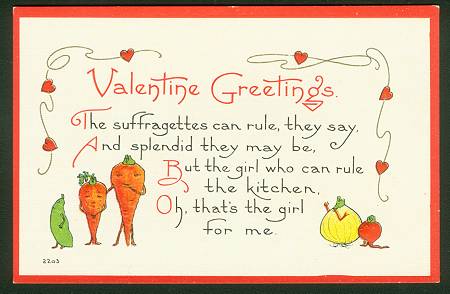 Valentine Greetings.
The suffragettes can rule, they say,
And splendid they may be,
But the girl who can rule
the kitchen,
Oh, that's the girl
for me.
2203